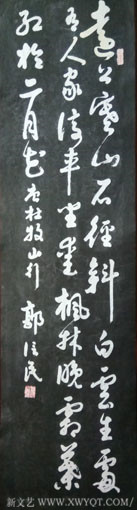 遠上寒山石徑斜白雲生處
有人家停車坐愛楓林晚霜葉
紅於二月花 唐杜牧山行 郭
新文艺 WWW.XWYQT.COM